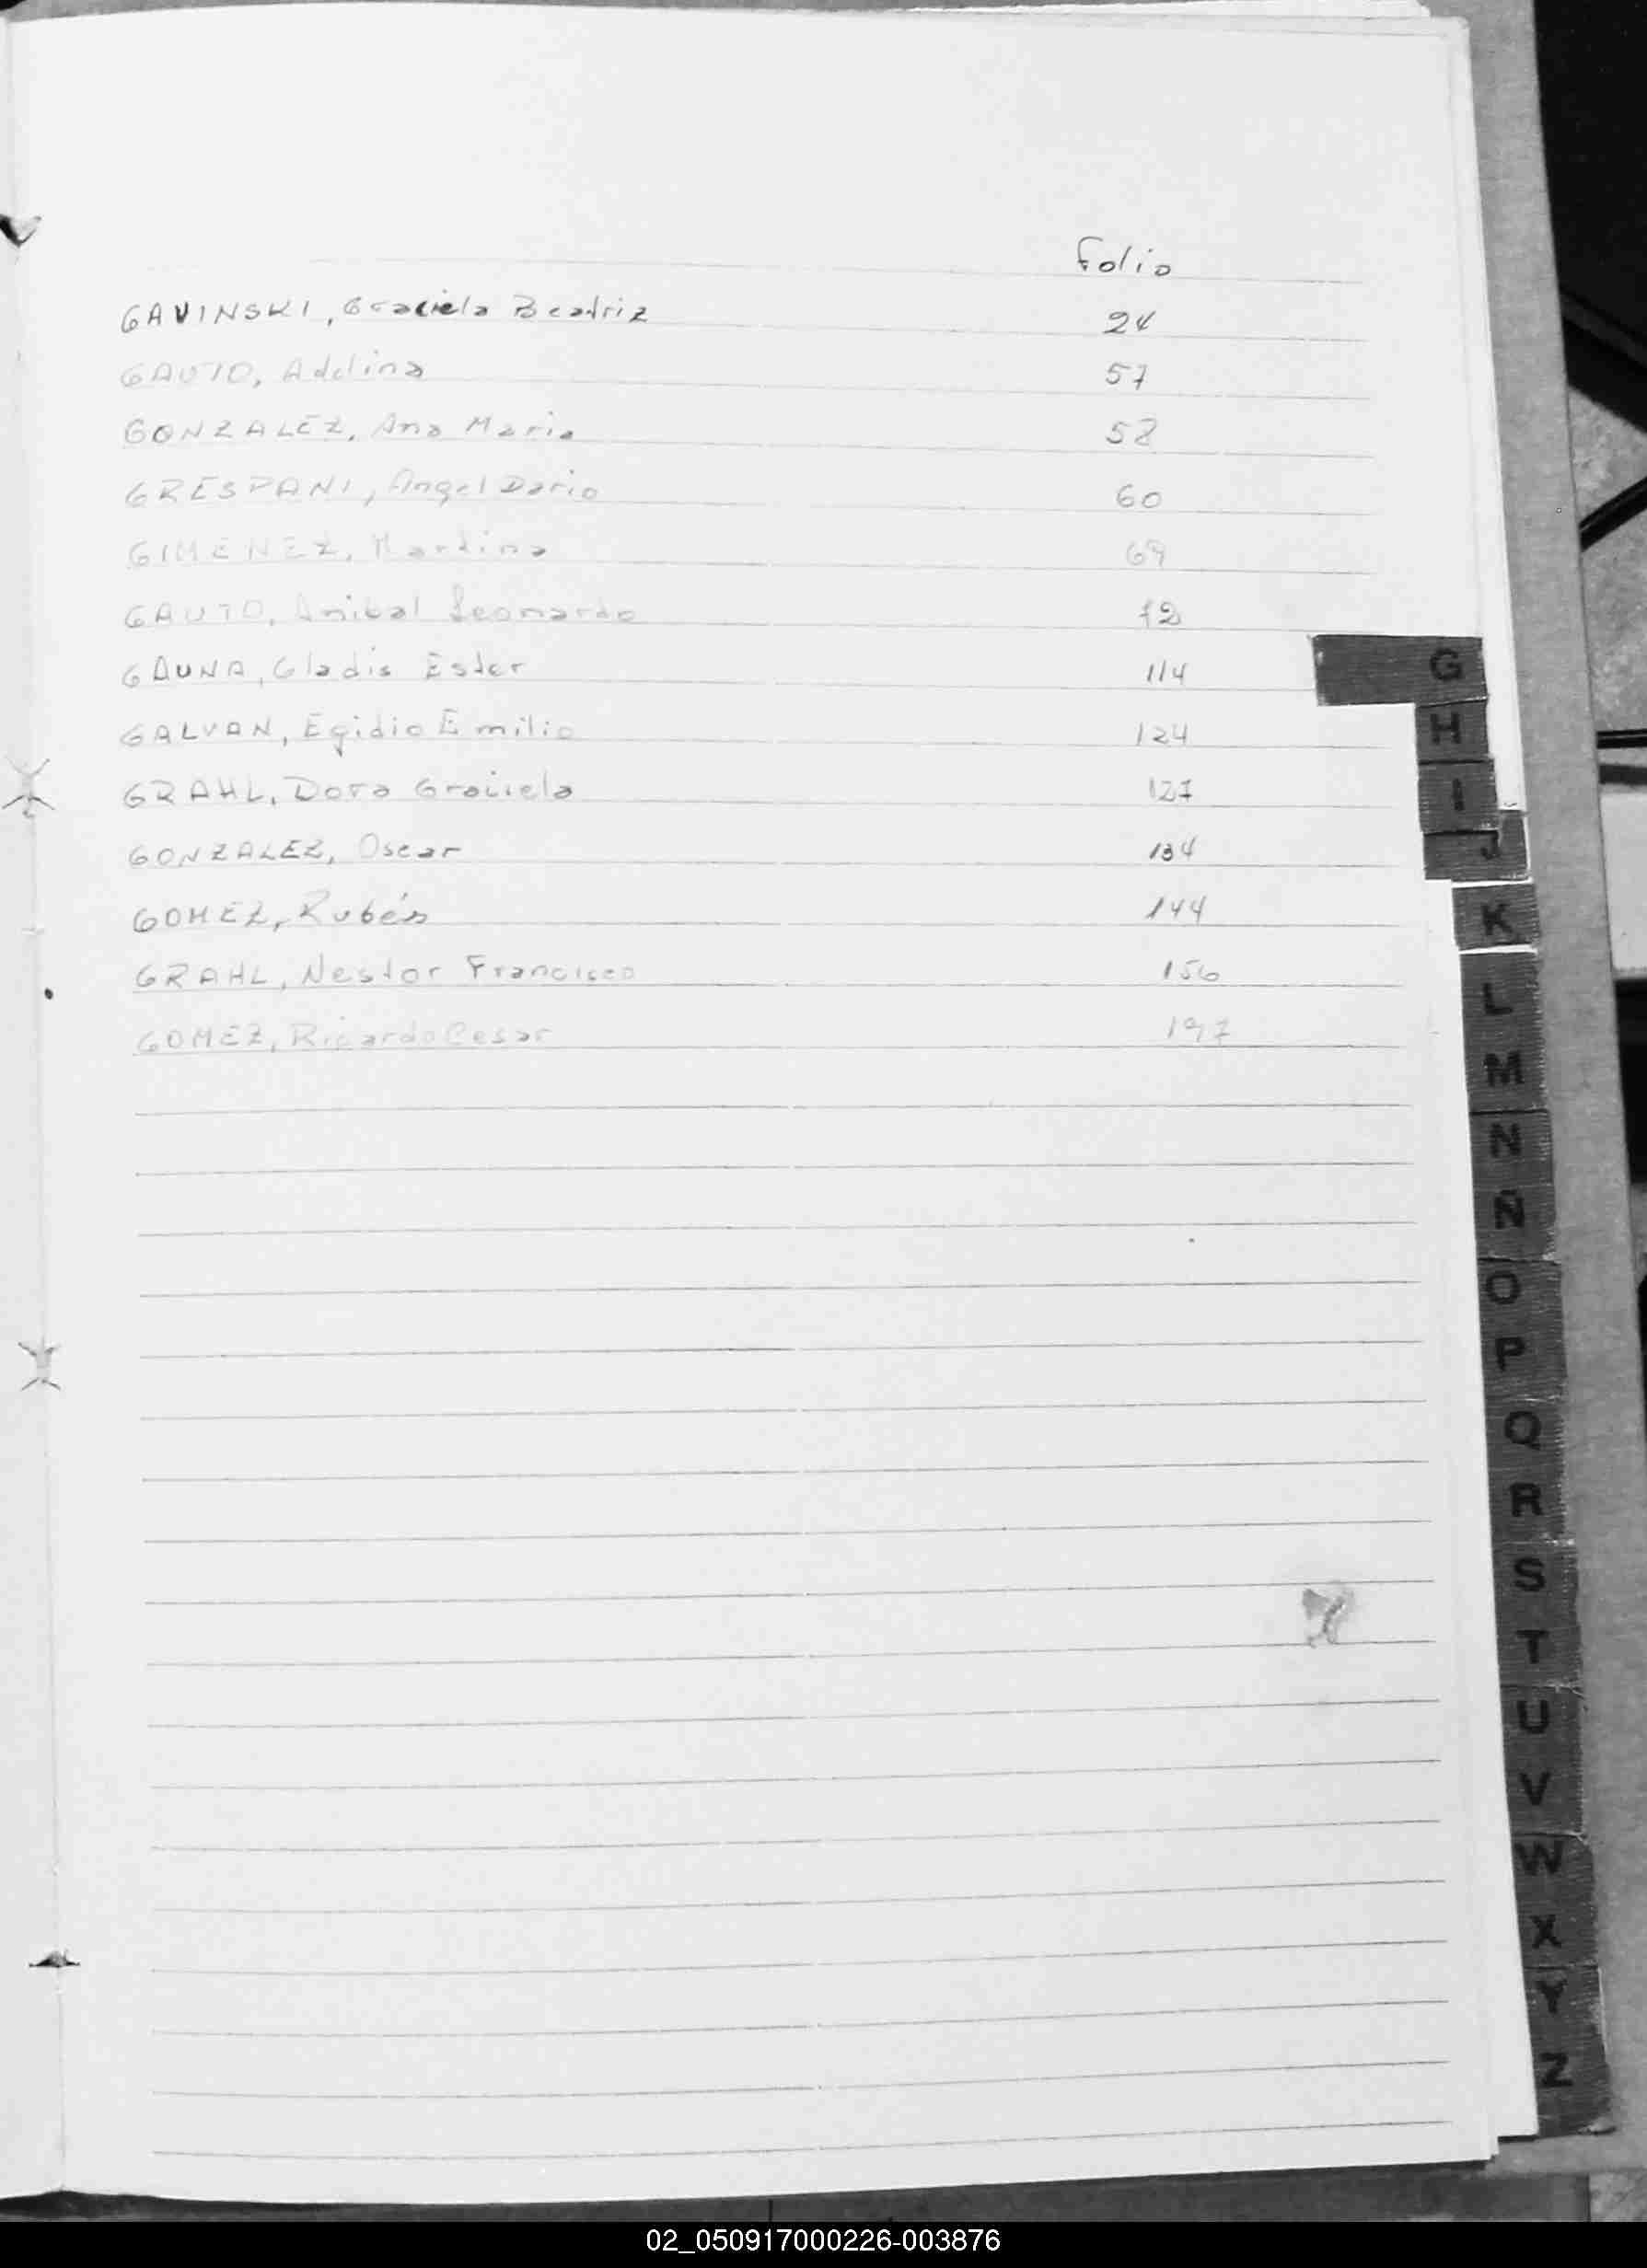 Folio
GAVINSKI, Graciela Beatriz 24
GAUTO, Adelina 57
GONZALEZ, Ana Maria 58
GRESPANI, Angel Dario 60
GIMENEZ, Martina 69
GAUTO, Anibal Leonardo 72
GAUNA, Gladis Ester 114
GALVAN, Egidio Emilio 124
GRAHL, Dora Graciela 127
GONZALEZ, Oscar 134
GOMEZ, Rubén 144
GRAHL, Nestor Francisco 156
GOMEZ, Ricardo Cesar 197
G
H
I
J
K
L
M
N
Ñ
O
P
Q
R
S
T
U
V
W
X
Y
Z
02_050917000226-003876